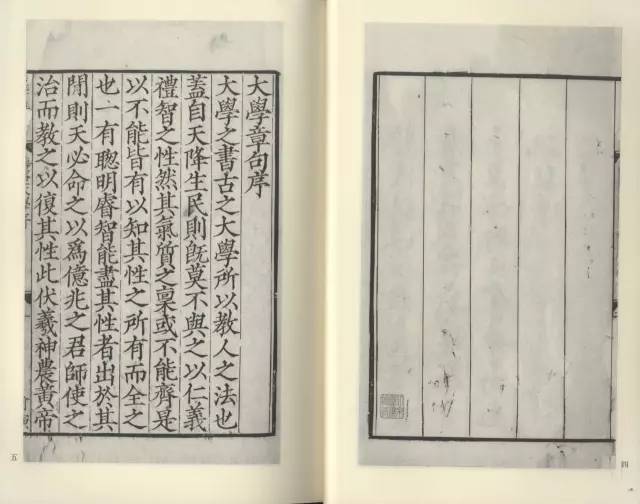 大學章句序
大學之書古之大學所以教人之法也
蓋自天降生民則旣莫不與之以仁義
禮智之性然其氣質之稟或不能齊是
以不能皆有以知其性之所有而全之
也一有聰明睿智能盡其性者出於其
閒則天必命之以爲億兆之君師使之
治而教之以復其性此伏羲神農黃帝
五
四